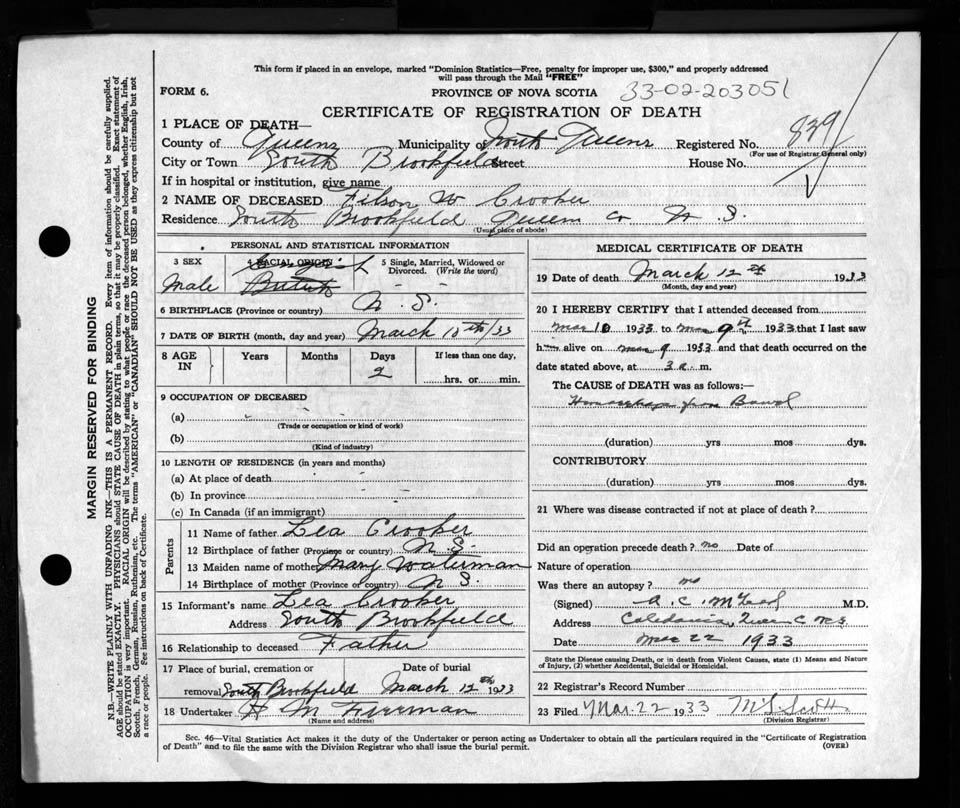 This form if placed in an envelope, marked "Dominion Statistics—Free, penalty for improper use, $300," and properly addressed
will pass through the Mail "FREE"
FORM 6.
PROVINCE OF NOVA SCOTIA
33-02-203051
CERTIFICATE OF REGISTRATION OF DEATH
1 PLACE OF DEATH—
County of Queens Municipality of North Queens Registered No. 839
(For use of Registrar General only)
City or Town South Brookfield Street House No.
If in hospital or institution, give name
2 NAME OF DECEASED Filson W Crooker
Residence South Brookfield Queens co N. S.
(Usual place of abode)
PERSONAL AND STATISTICAL INFORMATION
3 SEX
4 RACIAL ORIGIN
5 Single, Married, Widowed or
Divorced. (Write the word)
Male
6 BIRTHPLACE (Province or country) N. S.
7 DATE OF BIRTH (month, day and year) March 10th/33
8 AGE IN Years Months Days If less than one day,
2 hrs. or min.
9 OCCUPATION OF DECEASED
(a)
(Trade or occupation or kind of work)
(b)
(Kind of industry)
10 LENGTH OF RESIDENCE (in years and months)
(a) At place of death
(b) In province
(c) In Canada (if an immigrant)
Parents
11 Name of father Lea Crooker
12 Birthplace of father (Province or country) N. S.
13 Maiden name of mother Mary Waterman
14 Birthplace of mother (Province or country) N S.
15 Informant's name Lea Crooker
Address South Brookfield
16 Relationship to deceased Father
17 Place of burial, cremation or Date of burial
removal South Brookfield March 12th 1933
18 Undertaker H M
(Name and address)
MEDICAL CERTIFICATE OF DEATH
19 Date of death March 12th 1933
(Month, day and year)
20 I HEREBY CERTIFY that I attended deceased from
Mar 10 1933 to Mar 9th 1933 that I last saw
him alive on Mar 9 1933 and that death occurred on the
date stated above, at 3 a. m.
The CAUSE of DEATH was as follows:—
Hemorrhage from Bowel
(duration) yrs mos dys.
CONTRIBUTORY
(duration) yrs mos dys.
21 Where was disease contracted if not at place of death?
Did an operation precede death? no Date of
Nature of operation
Was there an autopsy? no
(Signed) A. C. McLeod M.D.
Address Caledonia, Queens C N.S.
Date Mar 22 1933
State the Disease causing Death, or in death from Violent Causes, state (1) Means and Nature
of Injury, (2) whether Accidental, Suicidal or Homicidal.
22 Registrar's Record Number
23 Filed Mar. 22 1933 Scott
(Division Registrar)
Sec. 46—Vital Statistics Act makes it the duty of the Undertaker or person acting as Undertaker to obtain all the particulars required in the "Certificate of Registration
of Death" and to file the same with the Division Registrar who shall issue the burial permit.
(OVER)
MARGIN RESERVED FOR BINDING
N.B.—WRITE PLAINLY WITH UNFADING INK—THIS IS A PERMANENT RECORD. Every item of information should be carefully supplied.
AGE should be stated EXACTLY. PHYSICIANS should STATE CAUSE OF DEATH in plain terms, so that it may be properly classified. Exact statement of
OCCUPATION is very important. RACIAL ORIGIN will be described by stating to what people or race the deceased person belonged, whether English, Irish,
Scotch, French, German, Russian, Ruthenian, etc. The terms "AMERICAN" or "CANADIAN" SHOULD NOT BE USED as they express citizenship but not
a race or people. See instructions on back of Certificate.